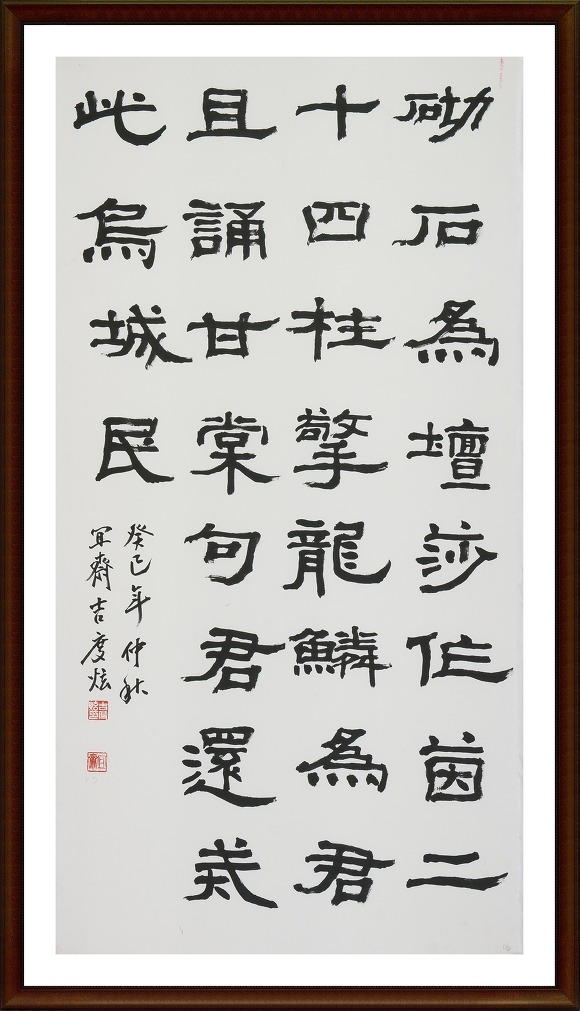 砌石為壇莎作茵二
十四柱擎龍鱗為君
且誦甘棠句君還
此烏城民
癸巳年仲秋
宜齋吉度炫